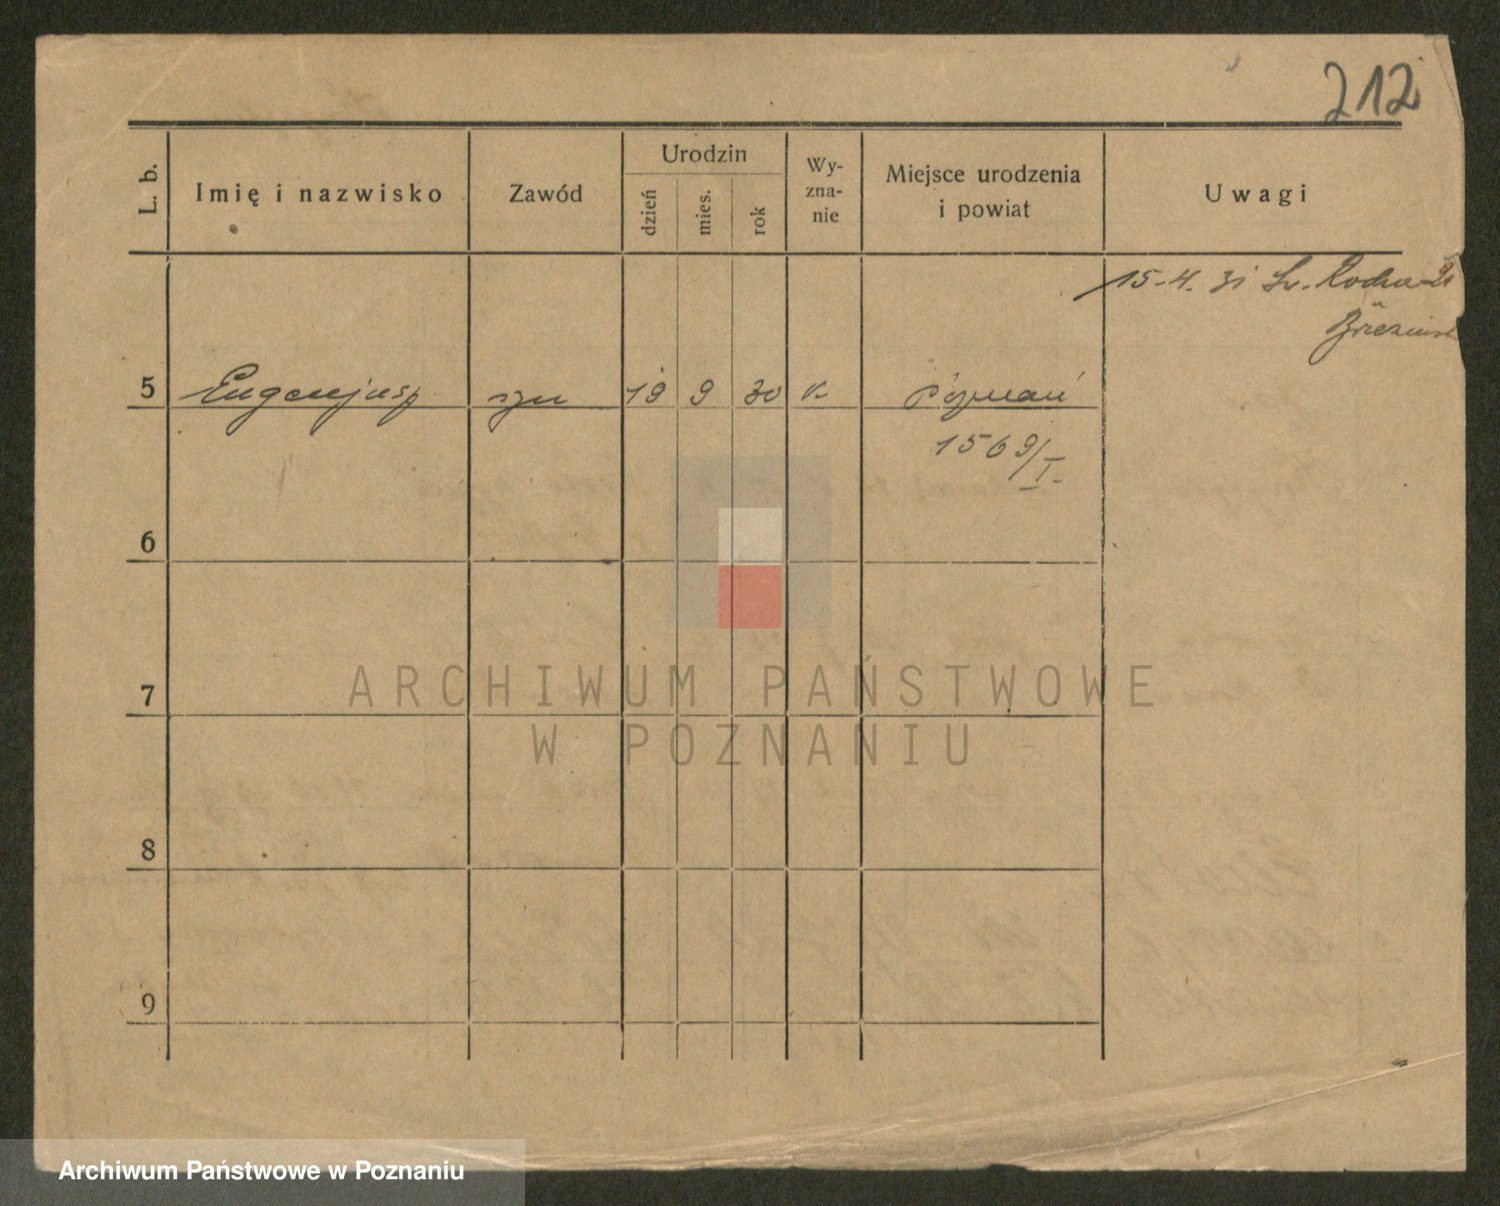 212
L. b.
Imię i nazwisko
Zawód
Urodzin
dzień
mies.
rok
Wy-
zna-
nie
Miejsce urodzenia
i powiat
Uwagi
15-4. 31 Św. Rocha
5 Eugenjusz syn 19 9 30 k. Poznań
1569/I.
6
7
8
9
ARCHIWUM PAŃSTWOWE
W POZNANIU
Archiwum Państwowe w Poznaniu